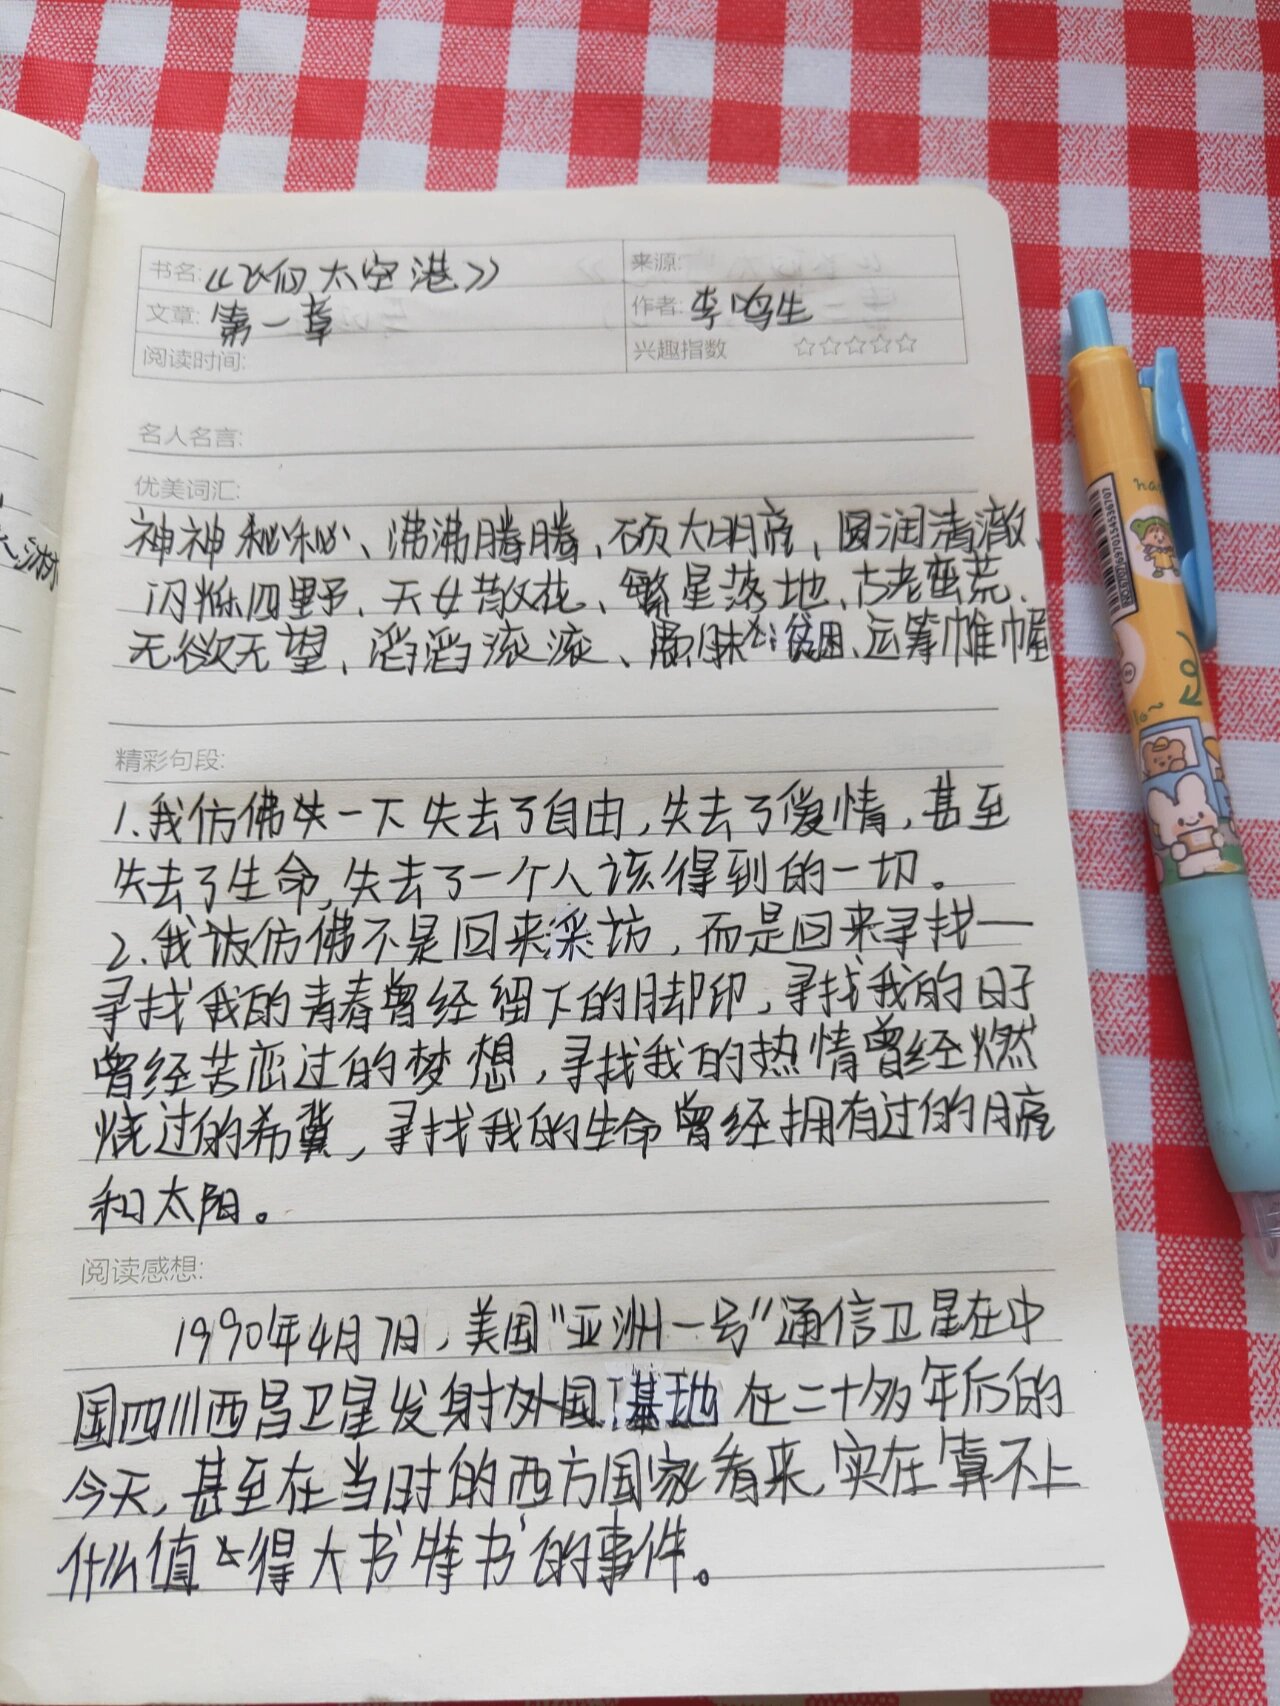 书名:《飞向太空港》
来源:
文章: 第一章
作者: 李鸣生
阅读时间:
兴趣指数 ☆☆☆☆☆
名人名言:
优美词汇:
神神秘秘、沸沸腾腾、硕大明亮、圆润清澈、
闪烁四野、天女散花、繁星落地、古老蛮荒、
无欲无望、滔滔滚滚、愚昧贫困、运筹帷幄
精彩句段:
1.我仿佛一下失去了自由,失去了爱情,甚至
失去了生命,失去了一个人该得到的一切。
2.我该仿佛不是回来采访,而是回来寻找一
寻找我的青春曾经留下的脚印,寻找我的日子
曾经苦恋过的梦想,寻找我的热情曾经燃
烧过的希冀,寻找我的生命曾经拥有过的月亮
和太阳。
阅读感想:
1990年4月7日,美国"亚洲一号"通信卫星在中
国四川西昌卫星发射外国基地在二十多年后的
今天,甚至在当时的西方国家看来,实在算不上
什么值得大书特书的事件。